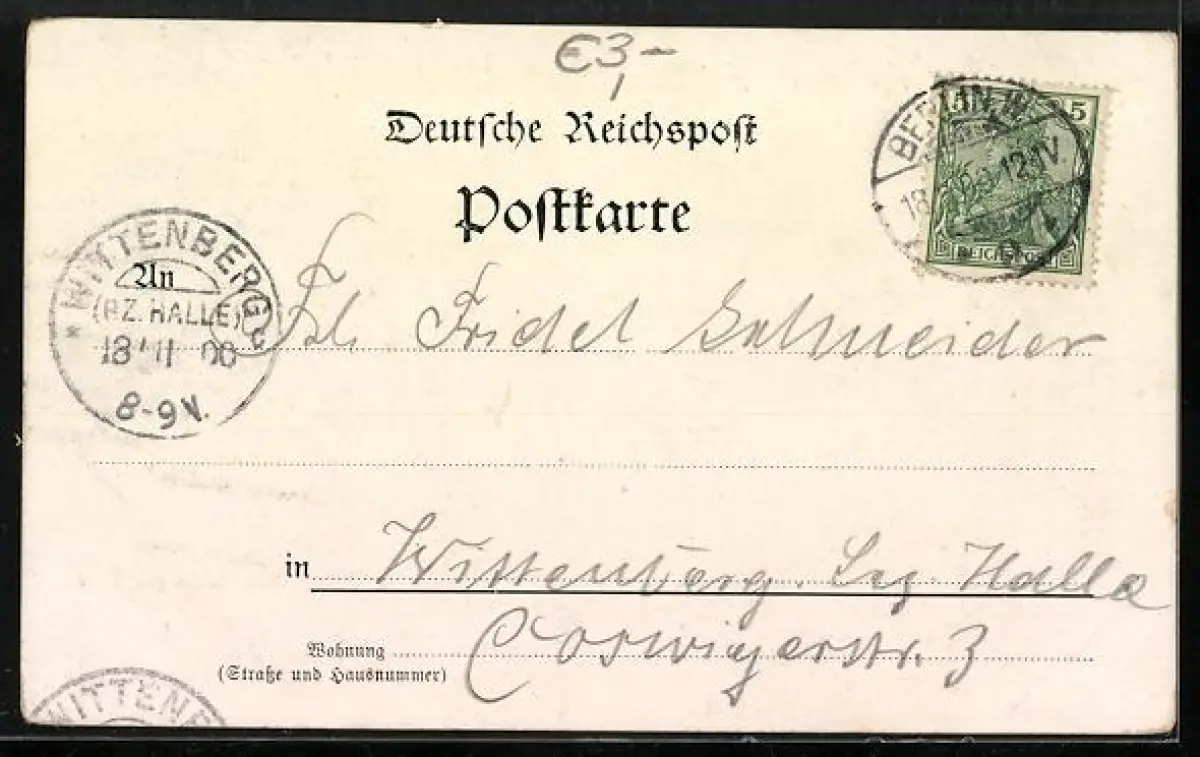 €3,-
Deutsche Reichspost
Postkarte
BERLIN W.
18 00 12-1V
5
REICHSPOST
WITTENBERG
(BZ. HALLE)
18 11 00
8-9V.
An
Frl. Fridel Schneider
in Wittenberg. Bez Halle
Wohnung Coswigerstr. 3
(Straße und Hausnummer)
WITTENB